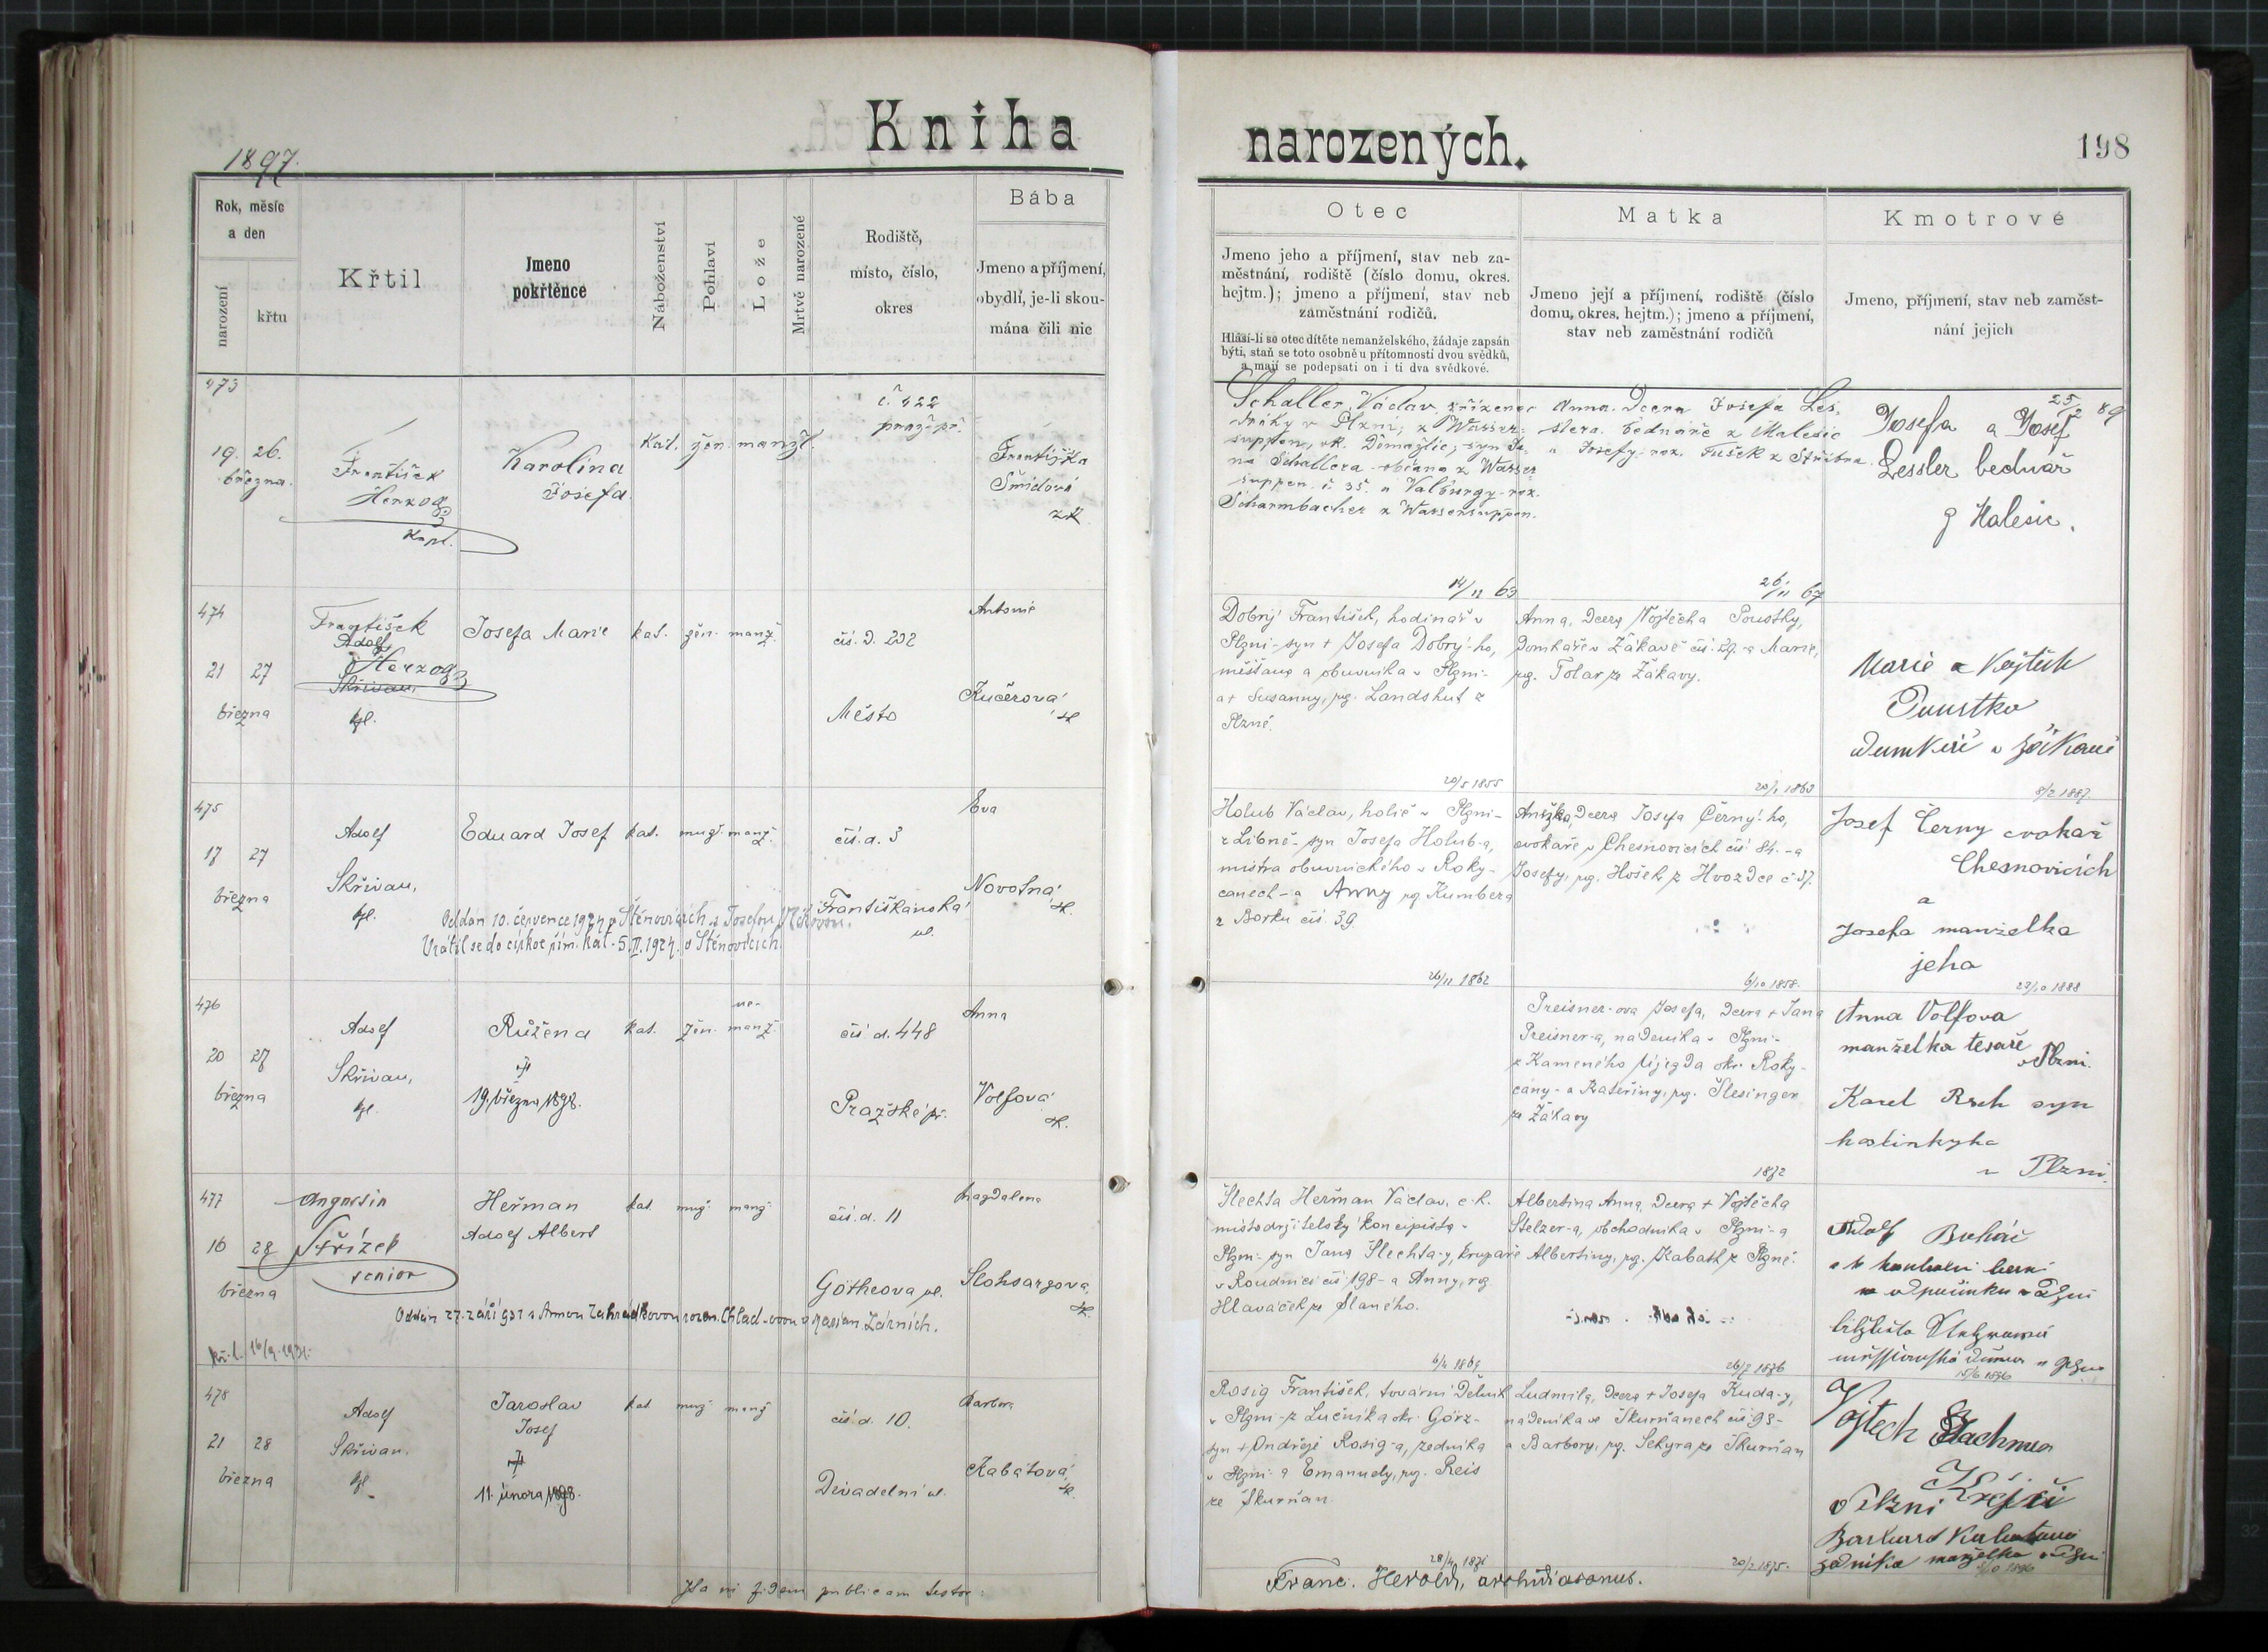 Kniha
narozených.
198
1897.
Rok, měsíc
a den
narození
křtu
Křtil
Jmeno
pokřtěnce
Náboženství
Pohlaví
Lože
Mrtvě narozené
Rodiště,
místo, číslo,
okres
Bába
Jmeno a příjmení,
obydlí, je-li skou-
mána čili nic
Otec
Jmeno jeho a příjmení, stav neb za-
městnání, rodiště (číslo domu, okres.
hejtm.); jmeno a příjmení, stav neb
zaměstnání rodičů.
Hlásí-li se otec dítěte nemanželského, žádaje zapsán
býti, staň se toto osobně u přítomnosti dvou svědků,
a mají se podepsati on i ti dva svědkové.
Matka
Jmeno její a příjmení, rodiště (číslo
domu, okres. hejtm.); jmeno a příjmení,
stav neb zaměstnání rodičů
Kmotrové
Jmeno, příjmení, stav neb zaměst-
nání jejich
473
19. 26.
března.
František
Herzog
kapl.
Karolina
Josefa.
Kat. žen. manžl.
č. 422
praž. př.
Františka
Šmídová
zk.
Schaller Václav, zřízenec
dráhy v Plzni, z Wasser-
suppen, ok. Domažlic, syn Ja-
na Schallera občana z Wasser
suppen č. 35. a Valburgy roz.
Scharmbacher z Wassersuppen.
14/12 63
Anna, dcera Josefa Les-
slera, bednáře z Malesic
a Josefy roz. Fušek z Stříbra.
26/11 67
Josefa a Josef
25/12 89
Lessler bednář
z Malesic.
474
21 27
března
František
Adolf
Herzog
Skřivan,
kpl.
Josefa Marie
kat. žen. manž.
čís. d. 202
Město
Antonie
Kučerová
zk
Dobrý František, hodinář v
Plzni - syn + Josefa Dobrý-ho,
měšťana a obuvníka v Plzni-
a + Susanny, roz. Landshut z
Plzně.
20/5 1855
Anna, dcera Vojtěcha Poustky,
domkáře v Žákavě čís. 29. a Marie,
roz. Tolar ze Žákavy.
20/1 1863
Marie a Vojtěch
Poustka
domkář v Žákavě
8/2 1887.
475
17 27
března
Adolf
Skřivan,
kpl.
Eduard Josef
kat. muž. manž.
čís. d. 3
Františkánská
ul.
Eva
Novotná
zk.
Oddán 10. července 1924 v Štěnovicích s Josefou
Vrátil se do církve řím. kat. 5.II.1924. v Štěnovicích.
Holub Václav, holič v Plzni-
z Libně - syn Josefa Holub-a,
mistra obuvnického v Roky-
canech - a Anny roz. Kumbera
z Borku čís. 39.
26/11 1862
Anežka, dcera Josefa Černý-ho,
cvokaře v Chesnovicích čís. 84. - a
Josefy, roz. Hošek z Hvozdce č. 37.
6/10 1858.
Josef Černy cvokař
Chesnovicích
a
Josefa manželka
jeho
23/10 1888
476
20 27
března
Adolf
Skřivan,
kpl.
Růžena
19. března 1898.
kat. žen. ne-
manž.
čís. d. 448
Pražské př.
Anna
Volfová
zk.
Preisner-ova Josefa, dcera + Jana
Preisner-a, nádeníka v Plzni-
z Kamenného Újezda okr. Roky-
cany - a Kateřiny, roz. Šlesinger
ze Žákavy
1872
Anna Volfova
manželka tesaře
v Plzni.
Karel Rech syn
hostinkyho
v Plzni.
477
16 28
března
Augustin
Střízek
senior
Heřman
Adolf Albert
kat. muž. manž.
čís. d. 11
Götheova ul.
Magdalena
Slohsargova,
zk.
Oddán 27. září 931 s Annou Zahrádkovou rozen. Chlad-ovou v Marian. Lázních.
kř. l. 16/9. 1931.
Šlechta Heřman Václav, c. k.
místodržitelský koncipista v
Plzni - syn Jana Šlechta-y, krupaře
v Roudnici čís. 198 - a Anny, roz.
Hlaváček ze Slaného.
6/4 1869
Albertina Anna, dcera + Vojtěcha
Stelzer-a, obchodníka v Plzni - a
Albertiny, roz. Kabath z Plzně.
26/7 1876
Adolf
15/6 1896
478
21 28
března
Adolf
Skřivan.
kpl.
Jaroslav
Josef
11. února 1898.
kat. muž. manž
čís. d. 10.
Divadelní ul.
Barbora
Kabátová,
zk.
Rosig František, tovární dělník
v Plzni - z Lučníka okr. Görz-
syn + Ondřeje Rosig-a, zedníka
v Plzni - a Emanuely, roz. Reis
ze Skurňan.
28/4 1871
Ludmila, dcera + Josefa Kuda-y,
nádeníka ve Skurňanech čís. 93-
a Barbory, roz. Sekyra ze Skurňan
20/2 1875.
Vojtech
Krejčí
v Plzni
zedníka manželka v Plzni
Franc. Herold, archidiaconus.